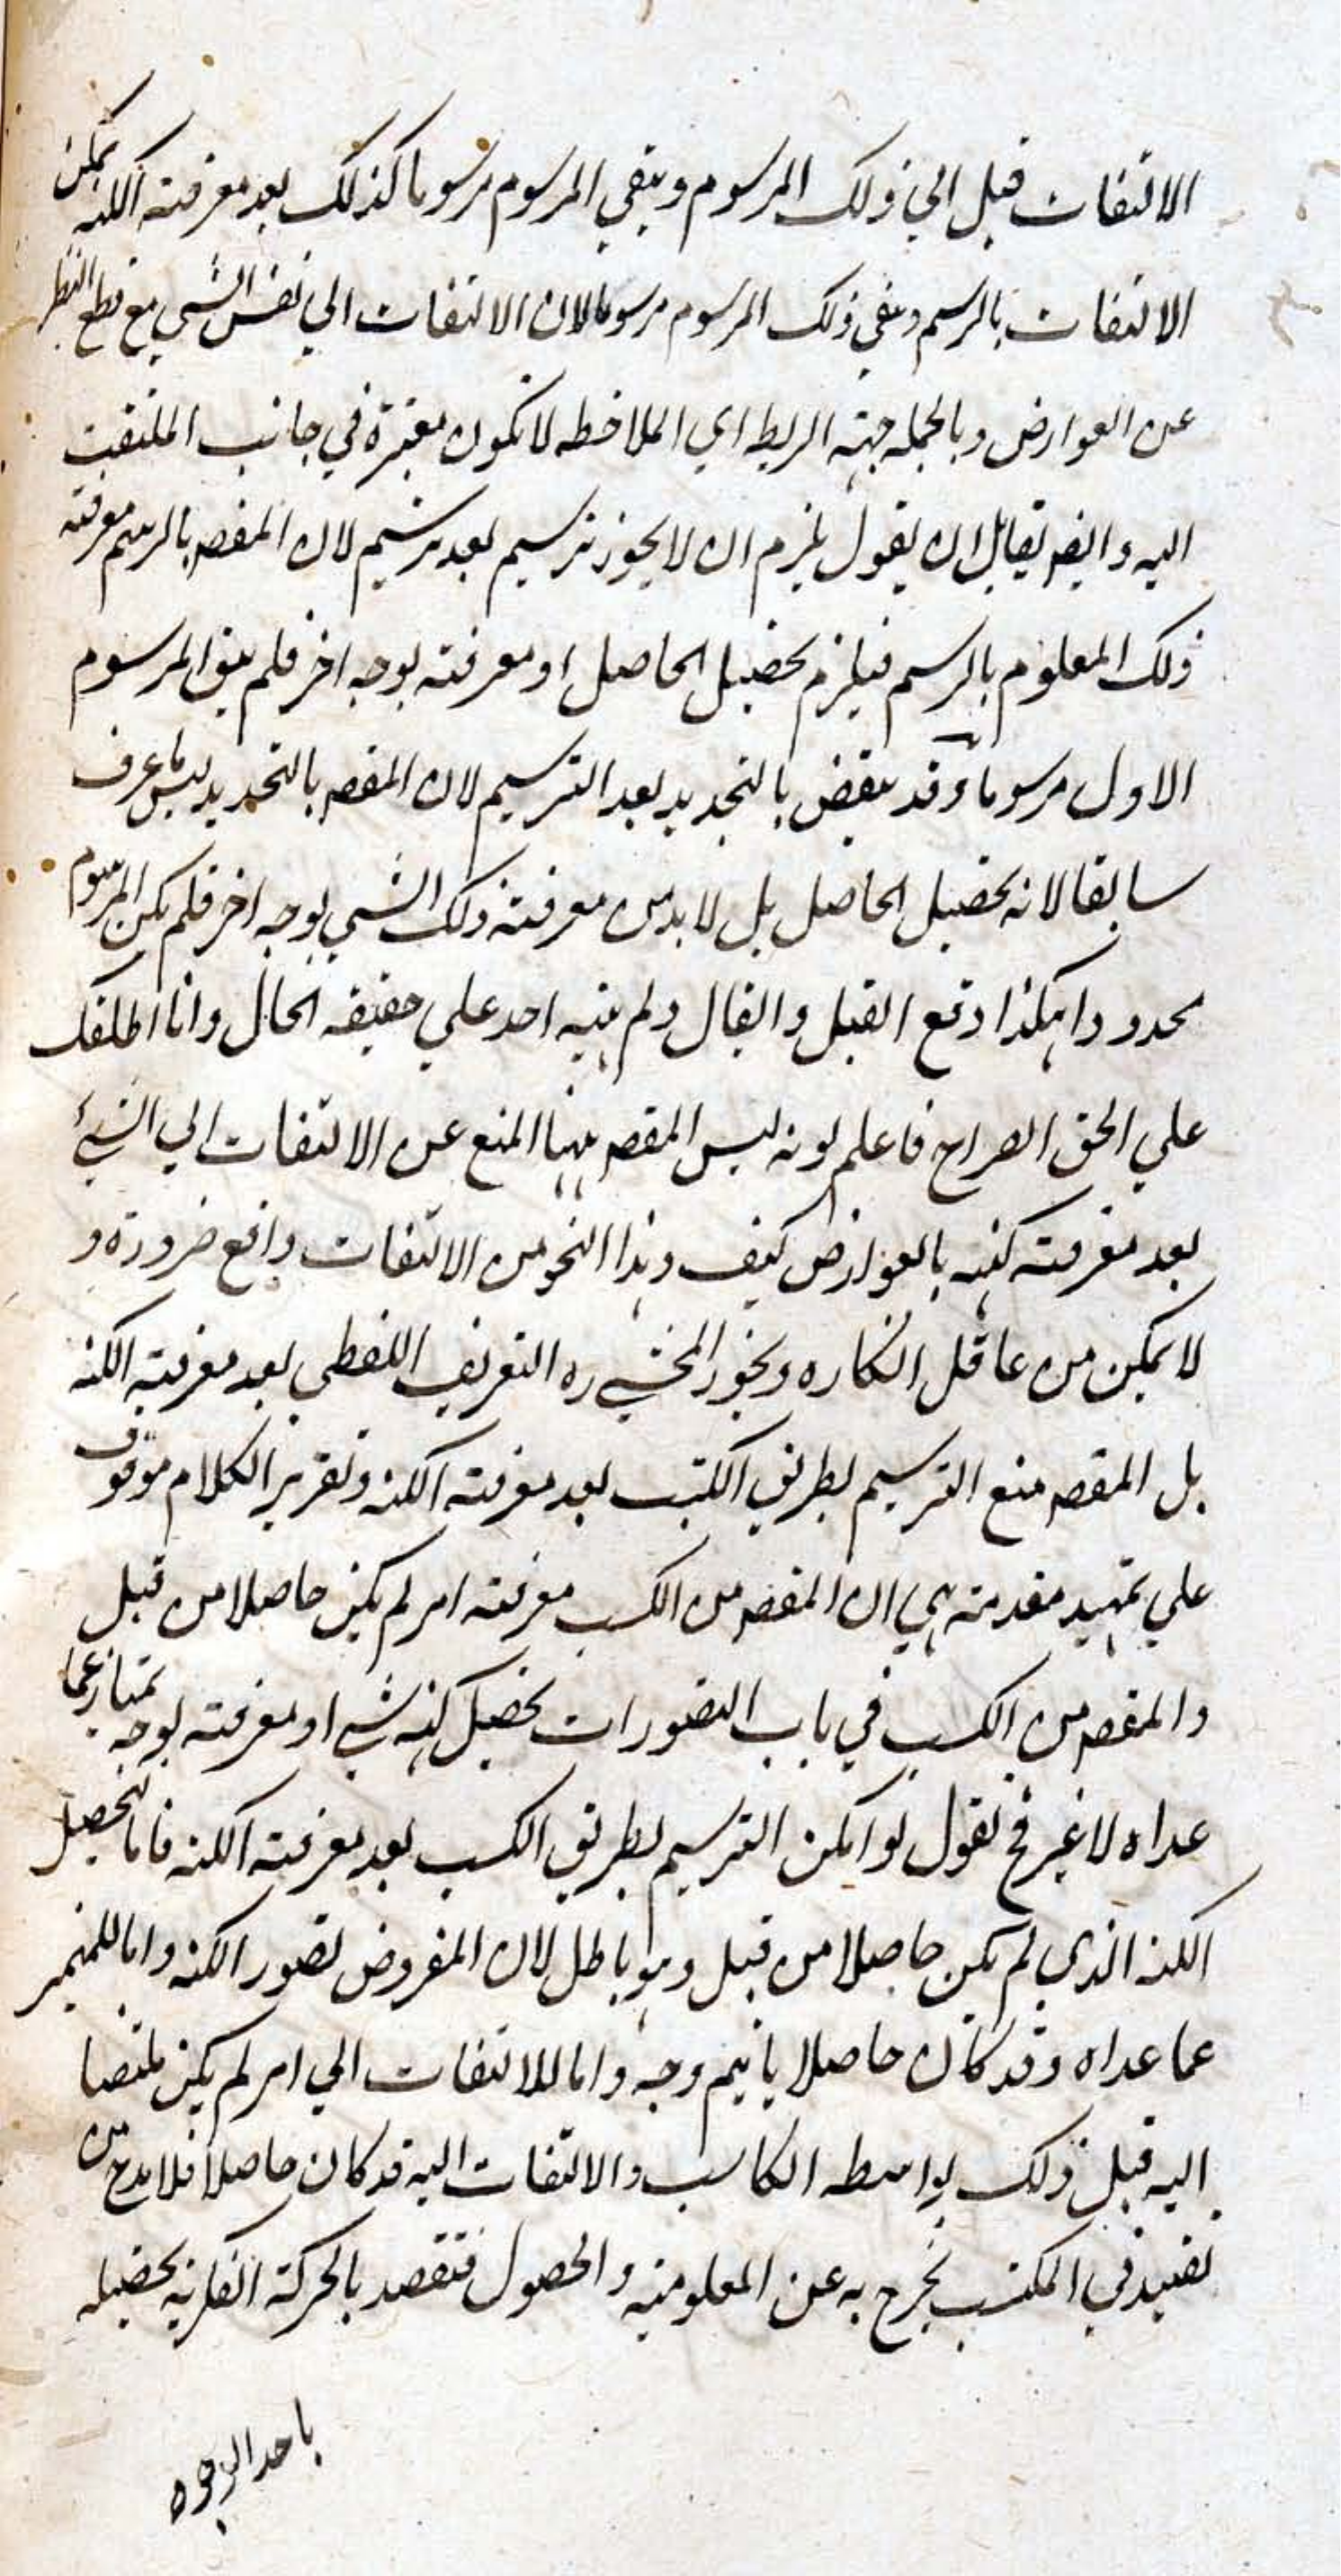 الالتفات قبل الي ذلك المرسوم ويبقي المرسوم مرسوما كذلك بعد معرفته الكنه يمكن
الالتفات بالرسم ويبقي ذلك المرسوم مرسوما لان الالتفات الي نفس الشي مع قطع النظر
عن العوارض وبالجمله جهته الربط اي الملاحظه لا تكون معتبرة في جانب الملتفت
اليه وايضا لقايل ان يقول يلزم ان لا يجوز ترسيم بعد ترسيم لان المقصـ بالرسم معرفته
ذلك المعلوم بالرسم فيلزم تحصيل الحاصل او معرفته بوجه اخر فلم يبق المرسوم
الاول مرسوما وقد ينقض بالتحديد بعد الترسيم لان المقصـ بالتحديد ليس ما عرف
سابقا لانه تحصيل الحاصل بل لا بد من معرفته ذلك الشي بوجه اخر فلم يكن المرسوم
محدودا هكذا وقع القيل والقال ولم ينبه احد علي حقيقه الحال وانا اطلعك
علي الحق الصراح فاعلم انه ليس المقصـ ههنا المنع عن الالتفات الي الشئ
بعد معرفته كنهه بالعوارض كيف وهذا النحو من الالتفات واقع ضرورة و
لا يمكن من عاقل انكاره ويجوز المحشي ره التعريف اللفظي بعد معرفته الكنه
بل المقصـ منع الترسيم بطريق الكسب بعد معرفته الكنه وتقرير الكلام موقوف
علي تمهيد مقدمته هي ان المقصـ من الكسب معرفته امر لم يكن حاصلا من قبل
والمقصـ من الكسب في باب التصورات تحصيل كنه شي او معرفته بوجه يمتاز عما
عداه لا غير فح نقول لو امكن الترسيم بطريق الكسب بعد معرفته الكنه فاما لتحصيل
الكنه الذي لم يكن حاصلا من قبل وهو باطل لان المفروض تصور الكنه واما للتميز
عما عداه وقد كان حاصلا باتم وجه واما للالتفات الي امر لم يكن ملتفتا
اليه قبل ذلك بواسطه الكاسب والالتفات اليه قد كان حاصلا فلا بد ح من
تقييد في المكتسب يخرج به عن المعلوميه والحصول فتقصد بالحركة الفكريه تحصيله
باحد الوجوه